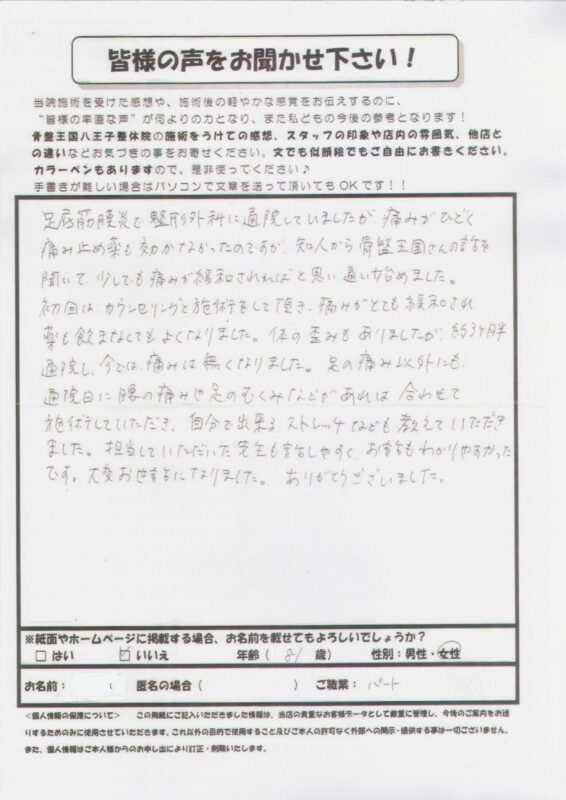 皆様の声をお聞かせ下さい！
当院施術を受けた感想や、施術後の軽やかな感覚をお伝えするのに、
“皆様の率直な声”が何よりの力となり、また私どもの今後の参考となります！
骨盤王国八王子整体院の施術をうけての感想、スタッフの印象や店内の雰囲気、他店と
の違いなどお気づきの事をお寄せください。文でも似顔絵でもご自由にお書きください。
カラーペンもありますので、是非使ってください♪
手書きが難しい場合はパソコンで文章を送って頂いてもＯＫです！！
足底筋膜炎で整形外科に通院していましたが、痛みがひどく
痛み止め薬も効かなかったのですが、知人から骨盤王国さんの話を
聞いて、少しでも痛みが緩和されればと思い通い始めました。
初回は、カウンセリングと施術をして頂き、痛みがとても緩和され、
薬も飲まなくてもよくなりました。体の歪みもありましたが、約3ヶ月半
通院し、今では、痛みは無くなりました。足の痛み以外にも、
通院日に腰の痛みや足のむくみなどがあれば合わせて
施術していただき、自分で出来るストレッチなども教えていただき
ました。担当していただいた先生も話しやすく、お話もわかりやすかった
です。大変お世話になりました。ありがとうございました。
※紙面やホームページに掲載する場合、お名前を載せてもよろしいでしょうか？
□ はい ☑ いいえ 年齢（ 歳） 性別：男性・女性
お名前： （ 匿名の場合（ ） ご職業：パート
＜個人情報の保護について＞ この用紙にご記入いただきました情報は、当店の貴重なお客様データとして厳重に管理し、今後のご案内をお送
りするためのみに使用させていただきます。これ以外の目的で使用すること及びご本人の許可なく外部への開示・提供する事は一切ございません。
また、個人情報はご本人様からのお申し出により訂正・削除いたします。